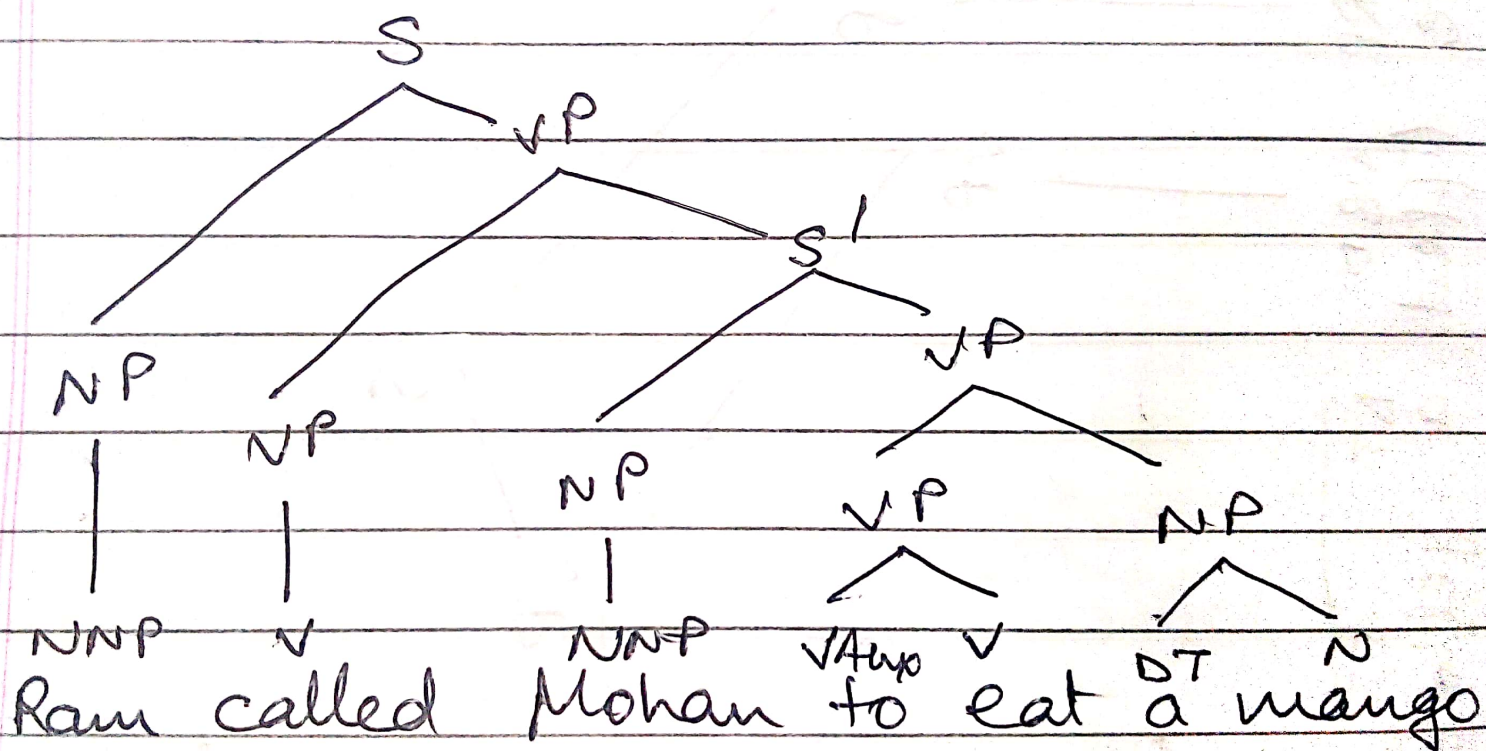 S
VP
S'
VP
NP
NP
NP VP NP
NNP V NNP VAux V DT N
Ram called Mohan to eat a mango